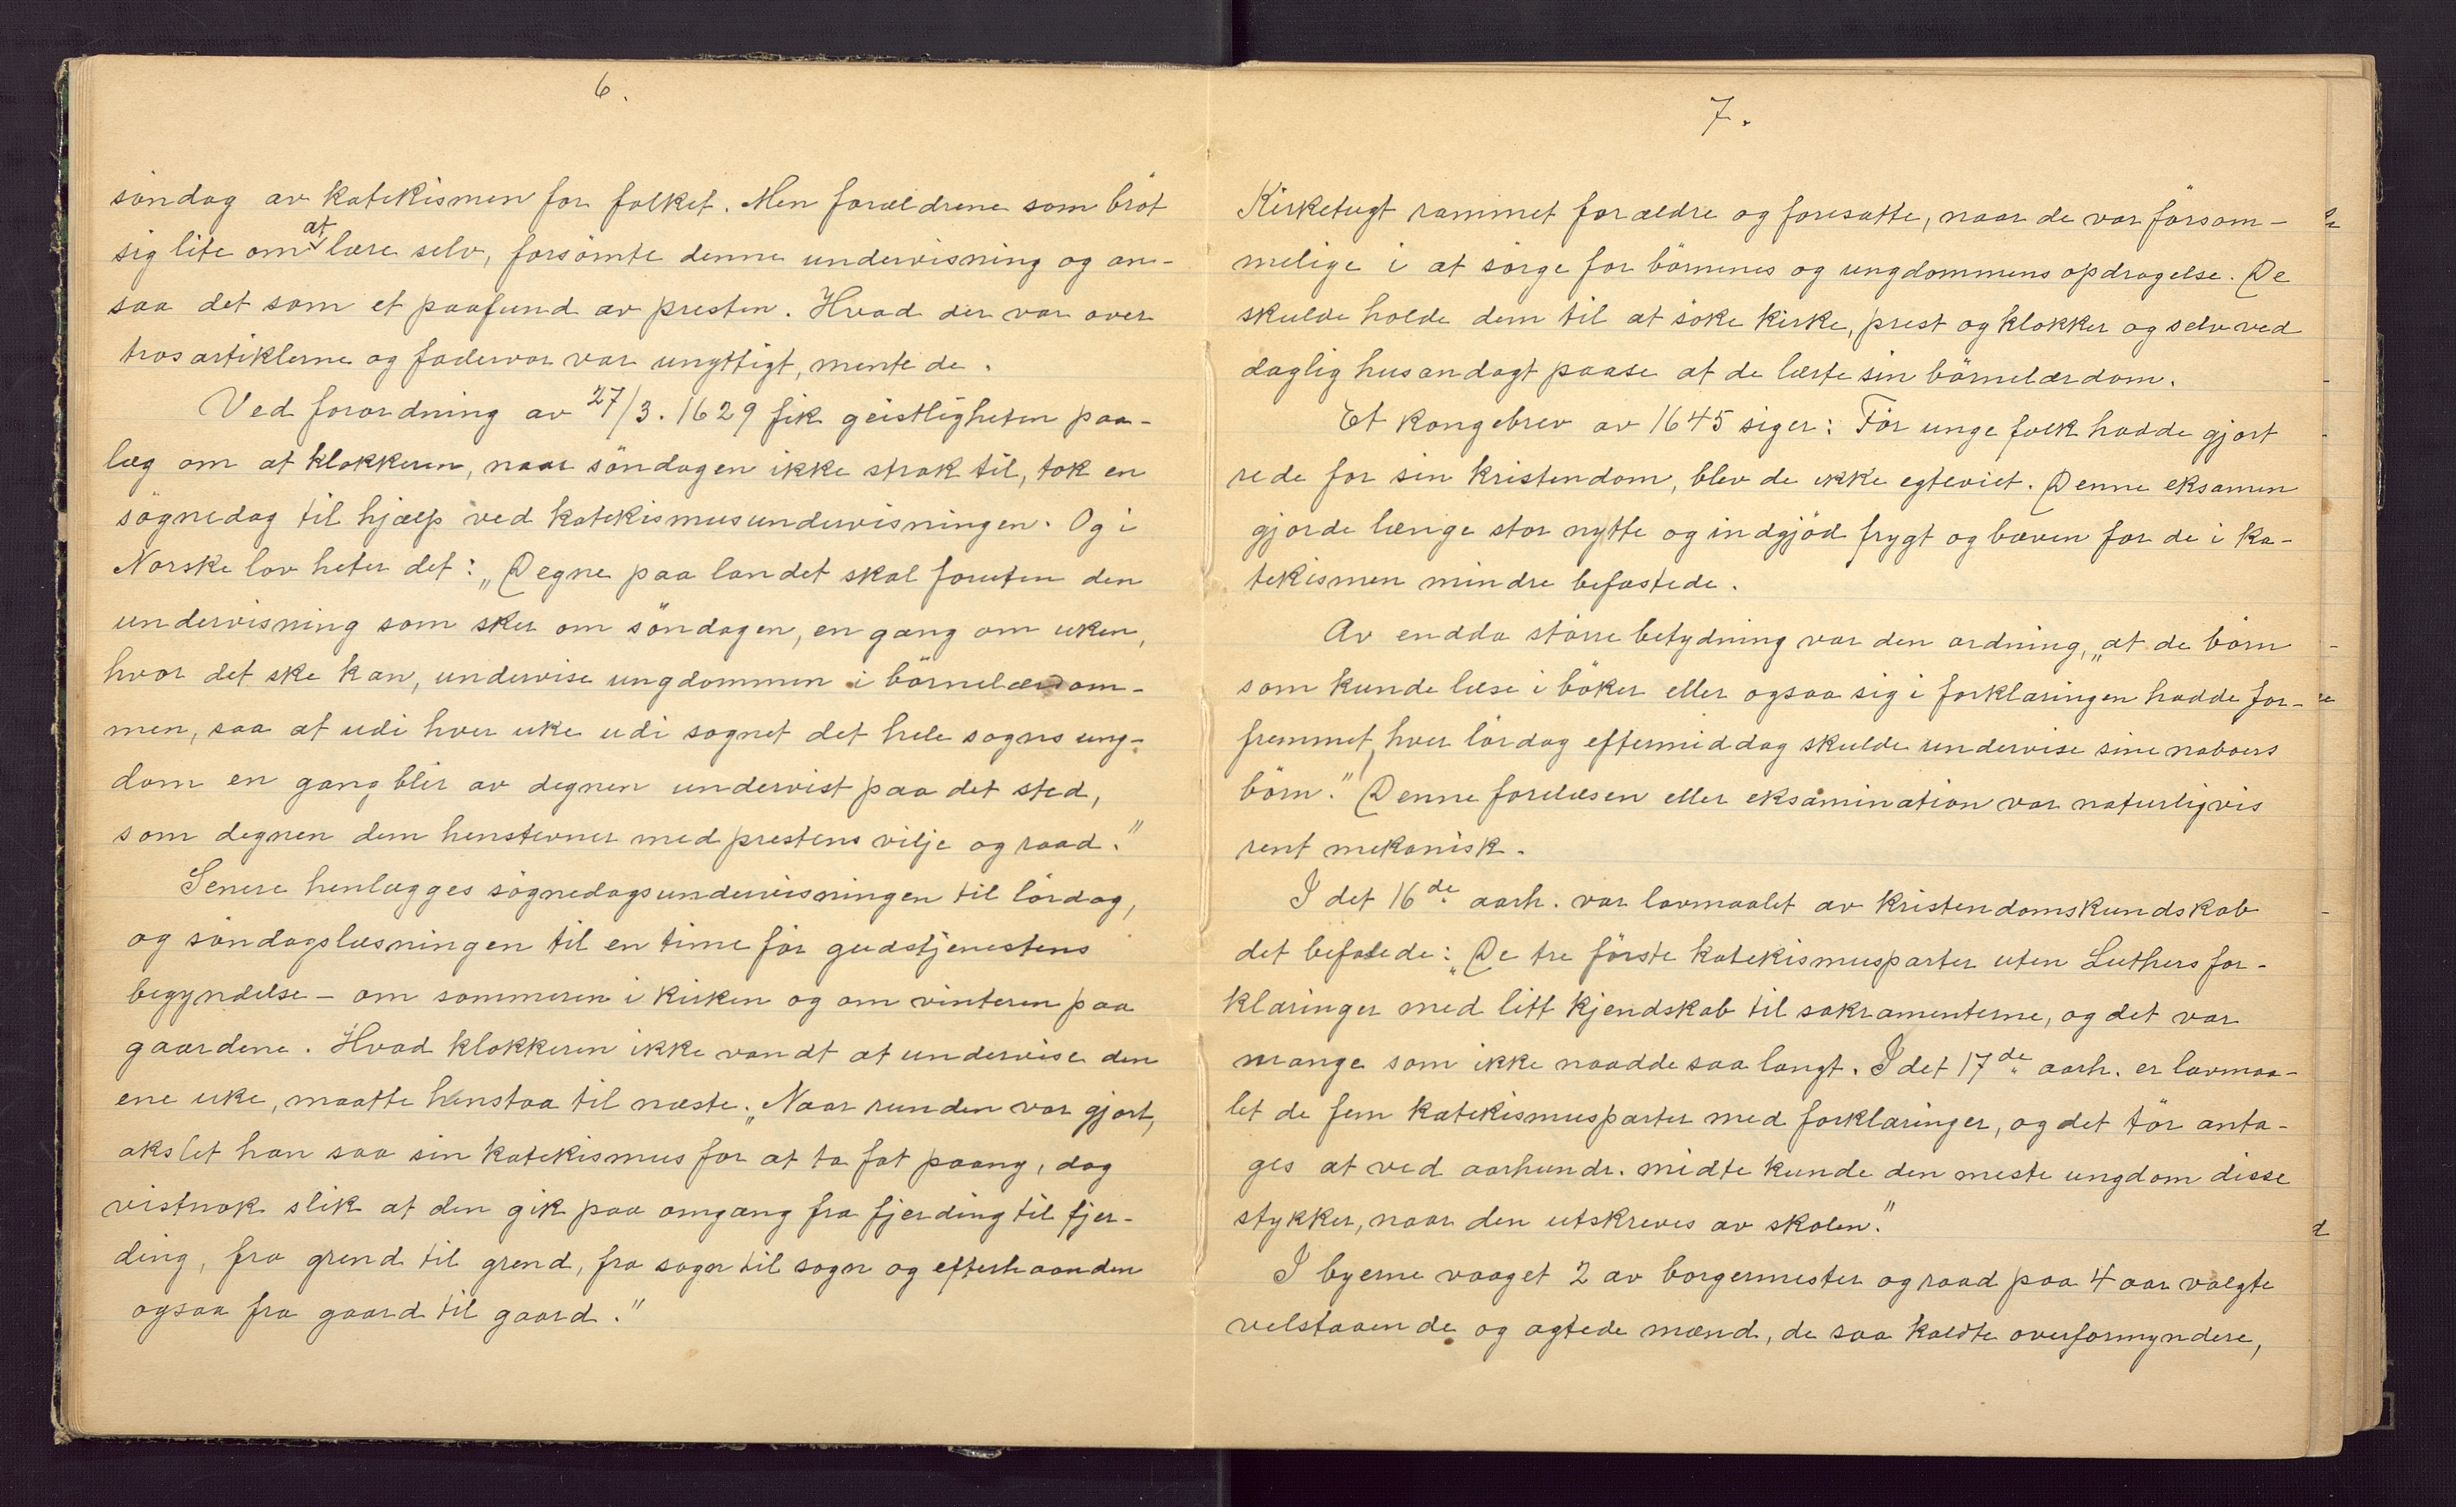 6.
söndag av katekismen for folket. Men forældrene som bröt
sig lite om at lære selv, forsömte denne undervisning og an-
saa det som et paafund av presten. Hvad der var over
trosartiklerne og fadervor var unyttigt, mente de.
Ved forordning av 27/3. 1629 fik geistligheten paa-
læg om at klokkeren, naar söndagen ikke strak til, tok en
sögnedag til hjælp ved katekismusundervisningen. Og i
Norske lov heter det: „Degne paa landet skal foruten den
undervisning som sker om söndagen, en gang om uken,
hvor det ske kan, undervise ungdommen i börnelærdom-
men, saa at udi hver uke udi sognet det hele sogns ung-
dom en gang blir av degnen undervist paa det sted,
som degnen dem henstevner med prestens vilje og raad."
Senere henlægges sögnedagsundervisningen til lördag,
og söndagslæsningen til en time för gudstjenestens
begyndelse - om sommeren i kirken og om vinteren paa
gaardene. Hvad klokkeren ikke vandt at undervise den
ene uke, maatte henstaa til næste. „Naar runden var gjort,
akslet han saa sin katekismus for at ta fat paany, dog
vistnok slik at den gik paa omgang fra fjerding til fjer-
ding, fra grend til grend, fra sogn til sogn og efterhaanden
ogsaa fra gaard til gaard."
7.
Kirketugt rammet forældre og foresatte, naar de var försom-
melige i at sörge for börnenes og ungdommens opdragelse. De
skulde holde dem til at söke kirke, prest og klokker og selv ved
daglig husandagt paase at de lærte sin börnelærdom.
Et kongebrev av 1645 siger: För unge folk hadde gjort
rede for sin kristendom, blev de ikke egteviet. Denne eksamen
gjorde længe stor nytte og indgjöd frygt og bæven for de i ka-
tekismen mindre befæstede.
Av endda större betydning var den ordning, „at de börn
som kunde læse i böker eller ogsaa sig i forklaringen hadde for-
fremmet, hver lördag eftermiddag skulde undervise sine naboers
börn." Denne forelæsen eller eksamination var naturligvis
rent mekanisk.
I det 16de aarh. var lavmaalet av kristendomskundskab
det befalede: „De tre förste katekismusparter uten Luthers for-
klaringer med litt kjendskab til sakramenterne, og det var
mange som ikke naadde saa langt. I det 17de aarh. er lavmaa-
let de fem katekismusparter med forklaringer, og det tör anta-
ges at ved aarhundr. midte kunde den meste ungdom disse
stykker, naar den utskreves av skolen."
I byerne vaaget 2 av borgermester og raad paa 4 aar valgte
velstaaende og agtede mænd, de saa kaldte overformyndere,